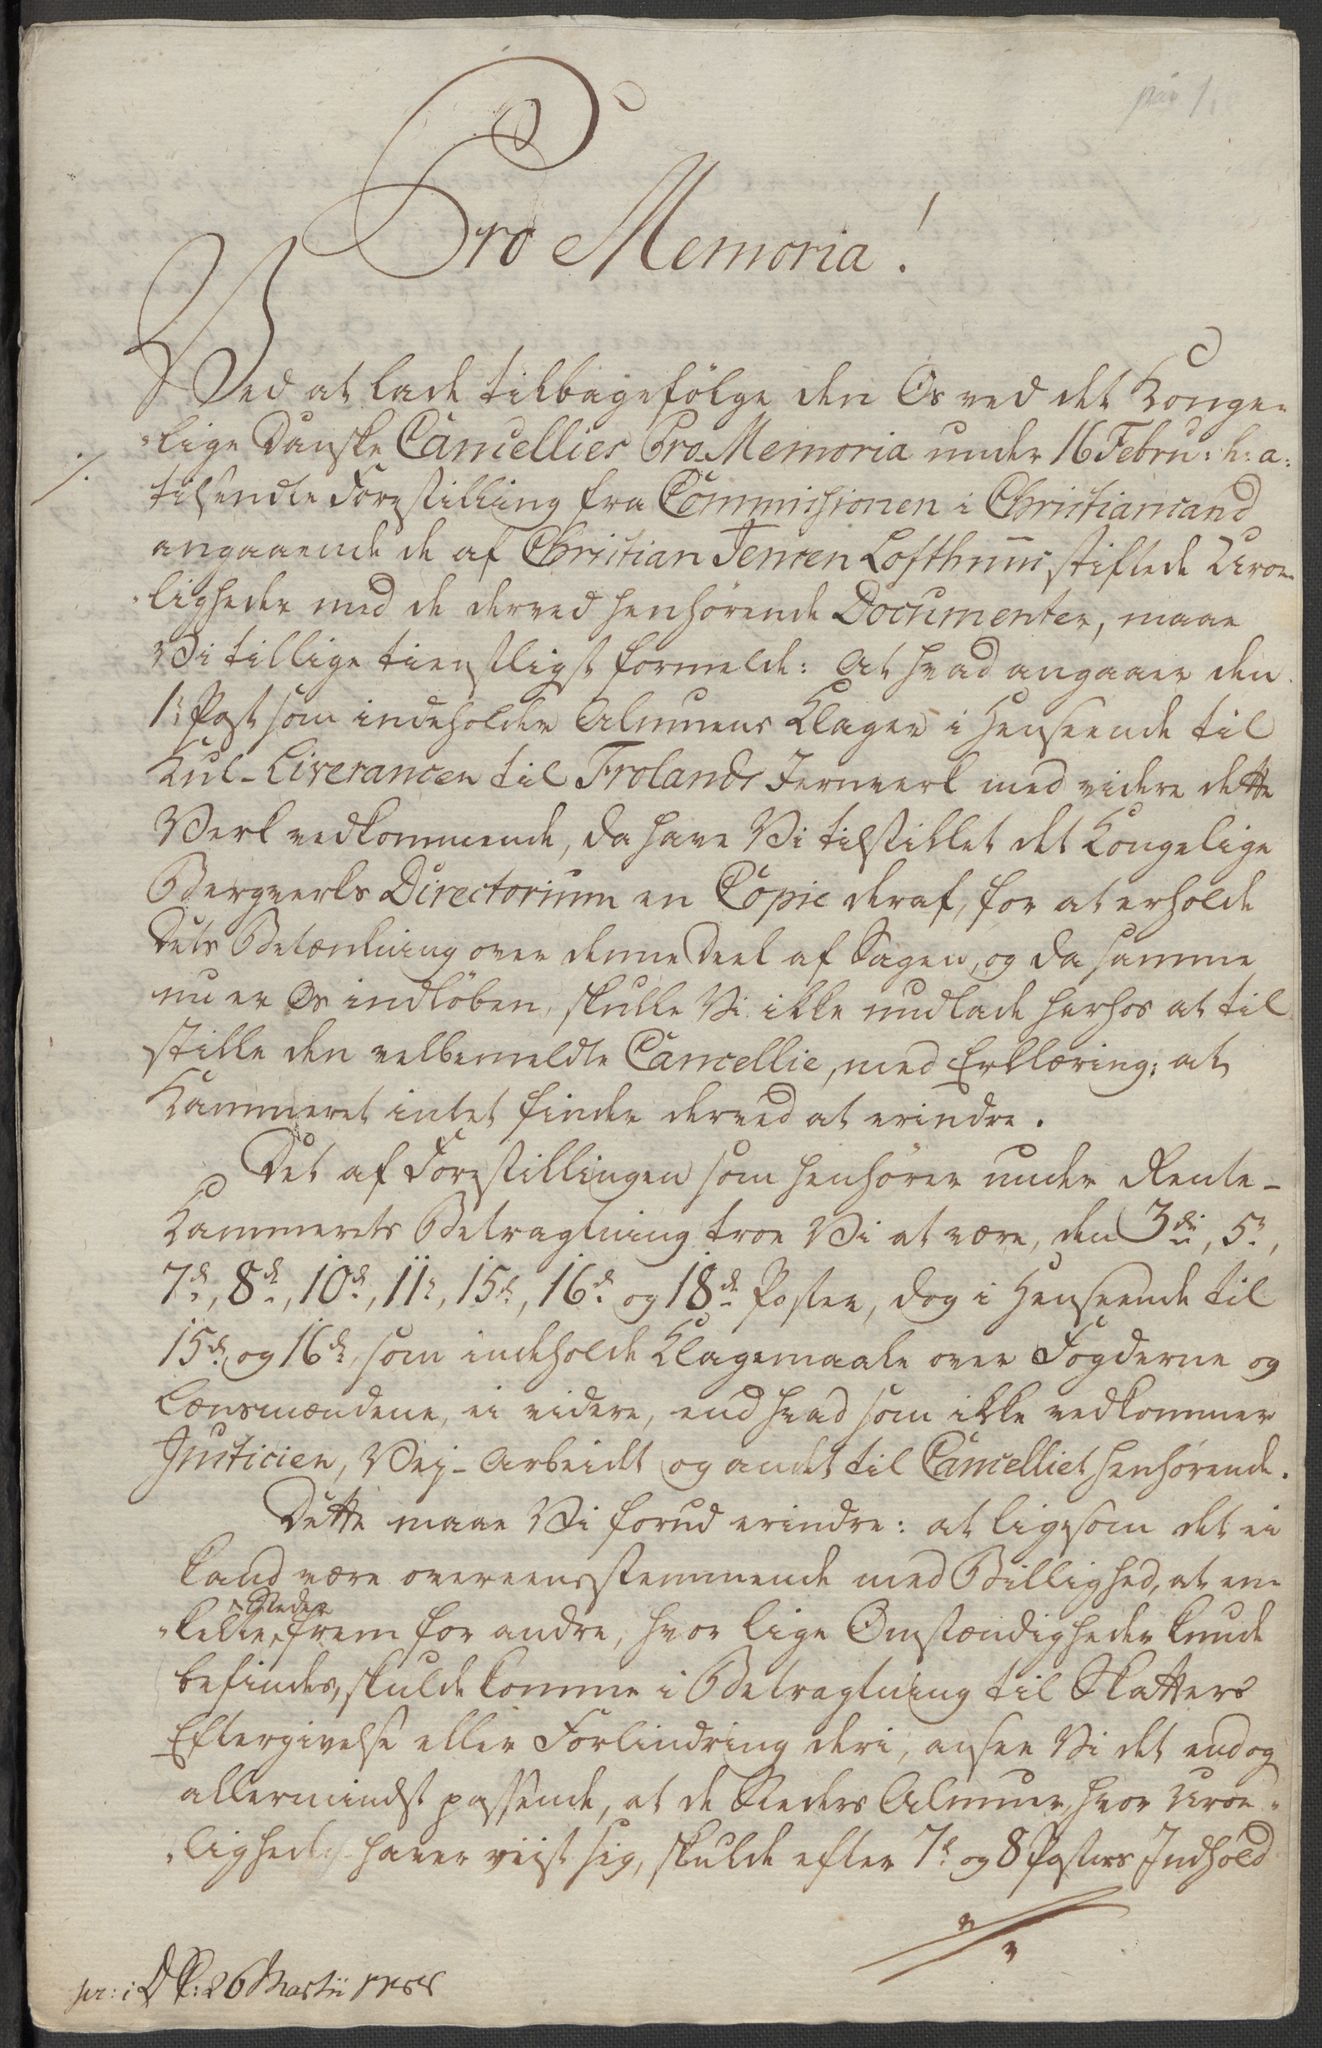 Pro Memoria!
Ved at lade tilbagefølge den Os ved det Konge-
lige Danske Cancellies Pro Memoria under 16 Febru: h: a:
tilsendte Forestilling fra Commissionen i Christiansand
angaaende de af Christian Jensen Lofthuus stiftede Uroe-
ligheder med de derved henhørende Documenter, maae
Vi tillige tienstligst formelde: At hvad angaaer den
1te Post som indeholder Almuens Klager i Henseende til
Kul-Liverancen til Frolands Jernverk med videre dette
Verk vedkommende, da have Vi tilstillet det Kongelige
Bergverks Directorium en Copie deraf, for at erholde
Dets Betænkning over denne Deel af Sagen, og da samme
nu er Os indløben, skulle Vi ikke undlade herhos at til
stille den velbemeldte Cancellie, med Erklæring: at
Kammeret intet finder derved at erindre.
Det af Forestillingen som henhører under Rente-
Kammerets Betragtning troe Vi at være, den 3die, 5te,
7de, 8de, 10de, 11te, 15de, 16de og 18de Poster, dog i Henseende til
15de og 16de, som indeholde Klagemaale over Fogderne og
Lænsmændene, ei videre, end hvad som ikke vedkommer
Justicien, Vej-Arbeidet og andet til Cancelliet henhørende.
Dette maae Vi forud erindre: at ligesom det ei
kand være overeensstemmende med Billighed, at en-
Steder
kelte frem for andre, hvor lige Omstændigheder kunde
befindes, skulde komme i Betragtning til Skatters
Eftergivelse eller Forlindring deri, ansee Vi det endog
allermindst passende, at de Steders Almue, hvor Uroe-
ligheder haver viist sig, skulde efter 7de og 8 Posters Indhold
pr: i DK: 26 Martii